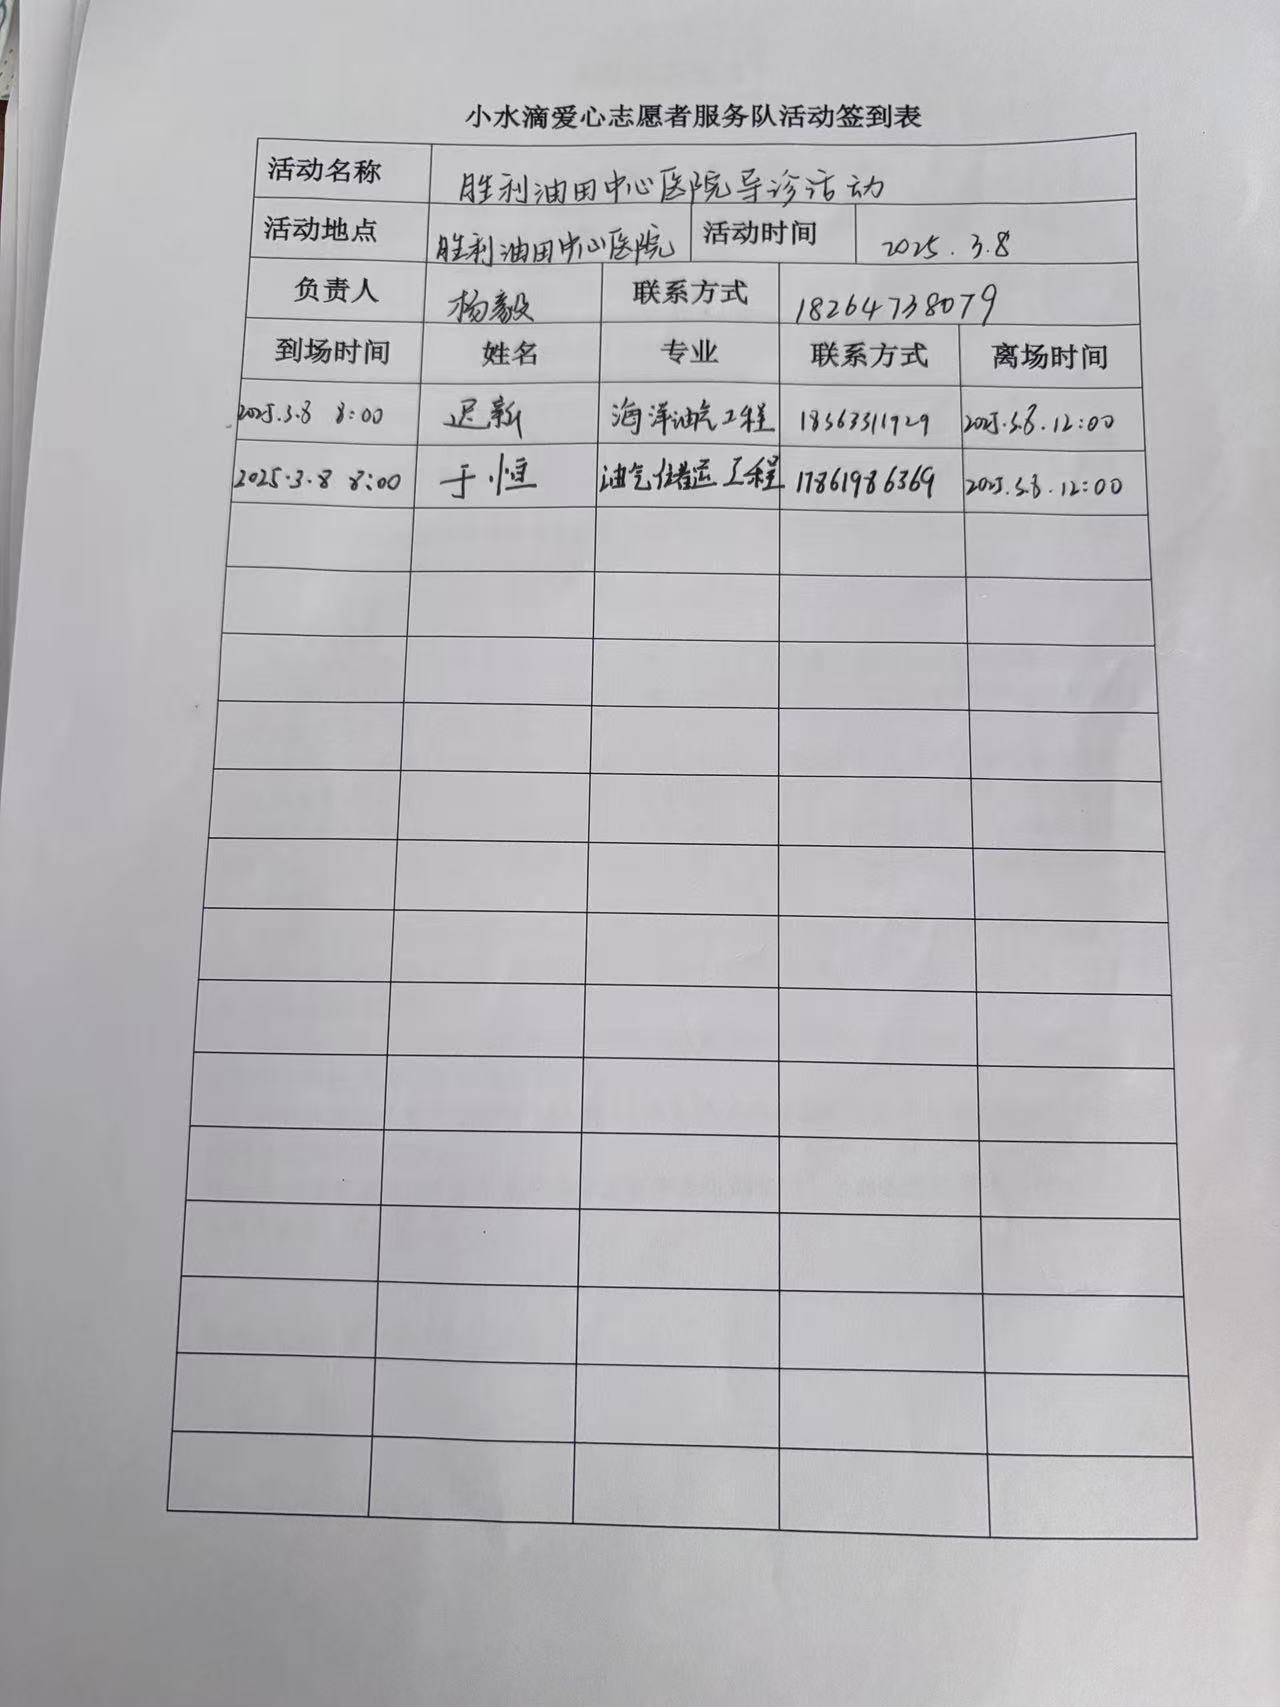 小水滴爱心志愿者服务队活动签到表
活动名称 胜利油田中心医院导诊活动
活动地点 胜利油田中心医院 活动时间 2025.3.8
负责人 杨毅 联系方式 18264738079
到场时间 姓名 专业 联系方式 离场时间
2025.3.8 8:00 迟新 海洋油气工程 18563311929 2025.3.8.12:00
2025.3.8 8:00 于恒 油气储运工程 17861986369 2025.3.8.12:00